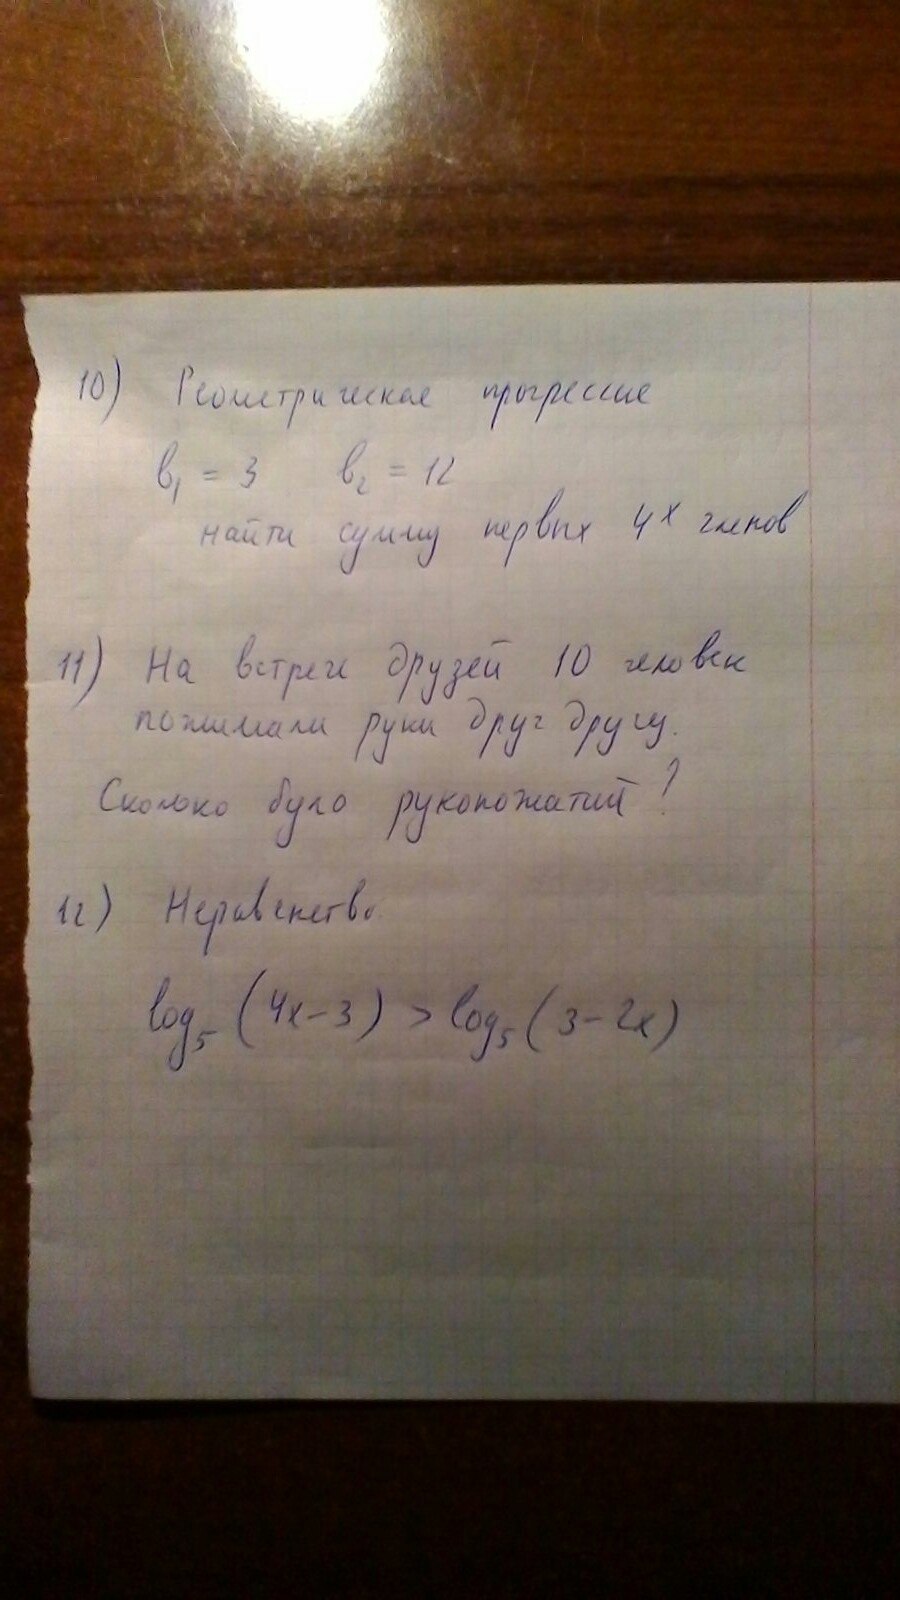 10) Геометрическая прогрессия
b₁ = 3 b₂ = 12
найти сумму первых 4х членов
11) На встрече друзей 10 человек
пожимали руки друг другу.
Сколько було рукопожатий?
12) Неравенство
log₅(4x-3) > log₅(3-2x)